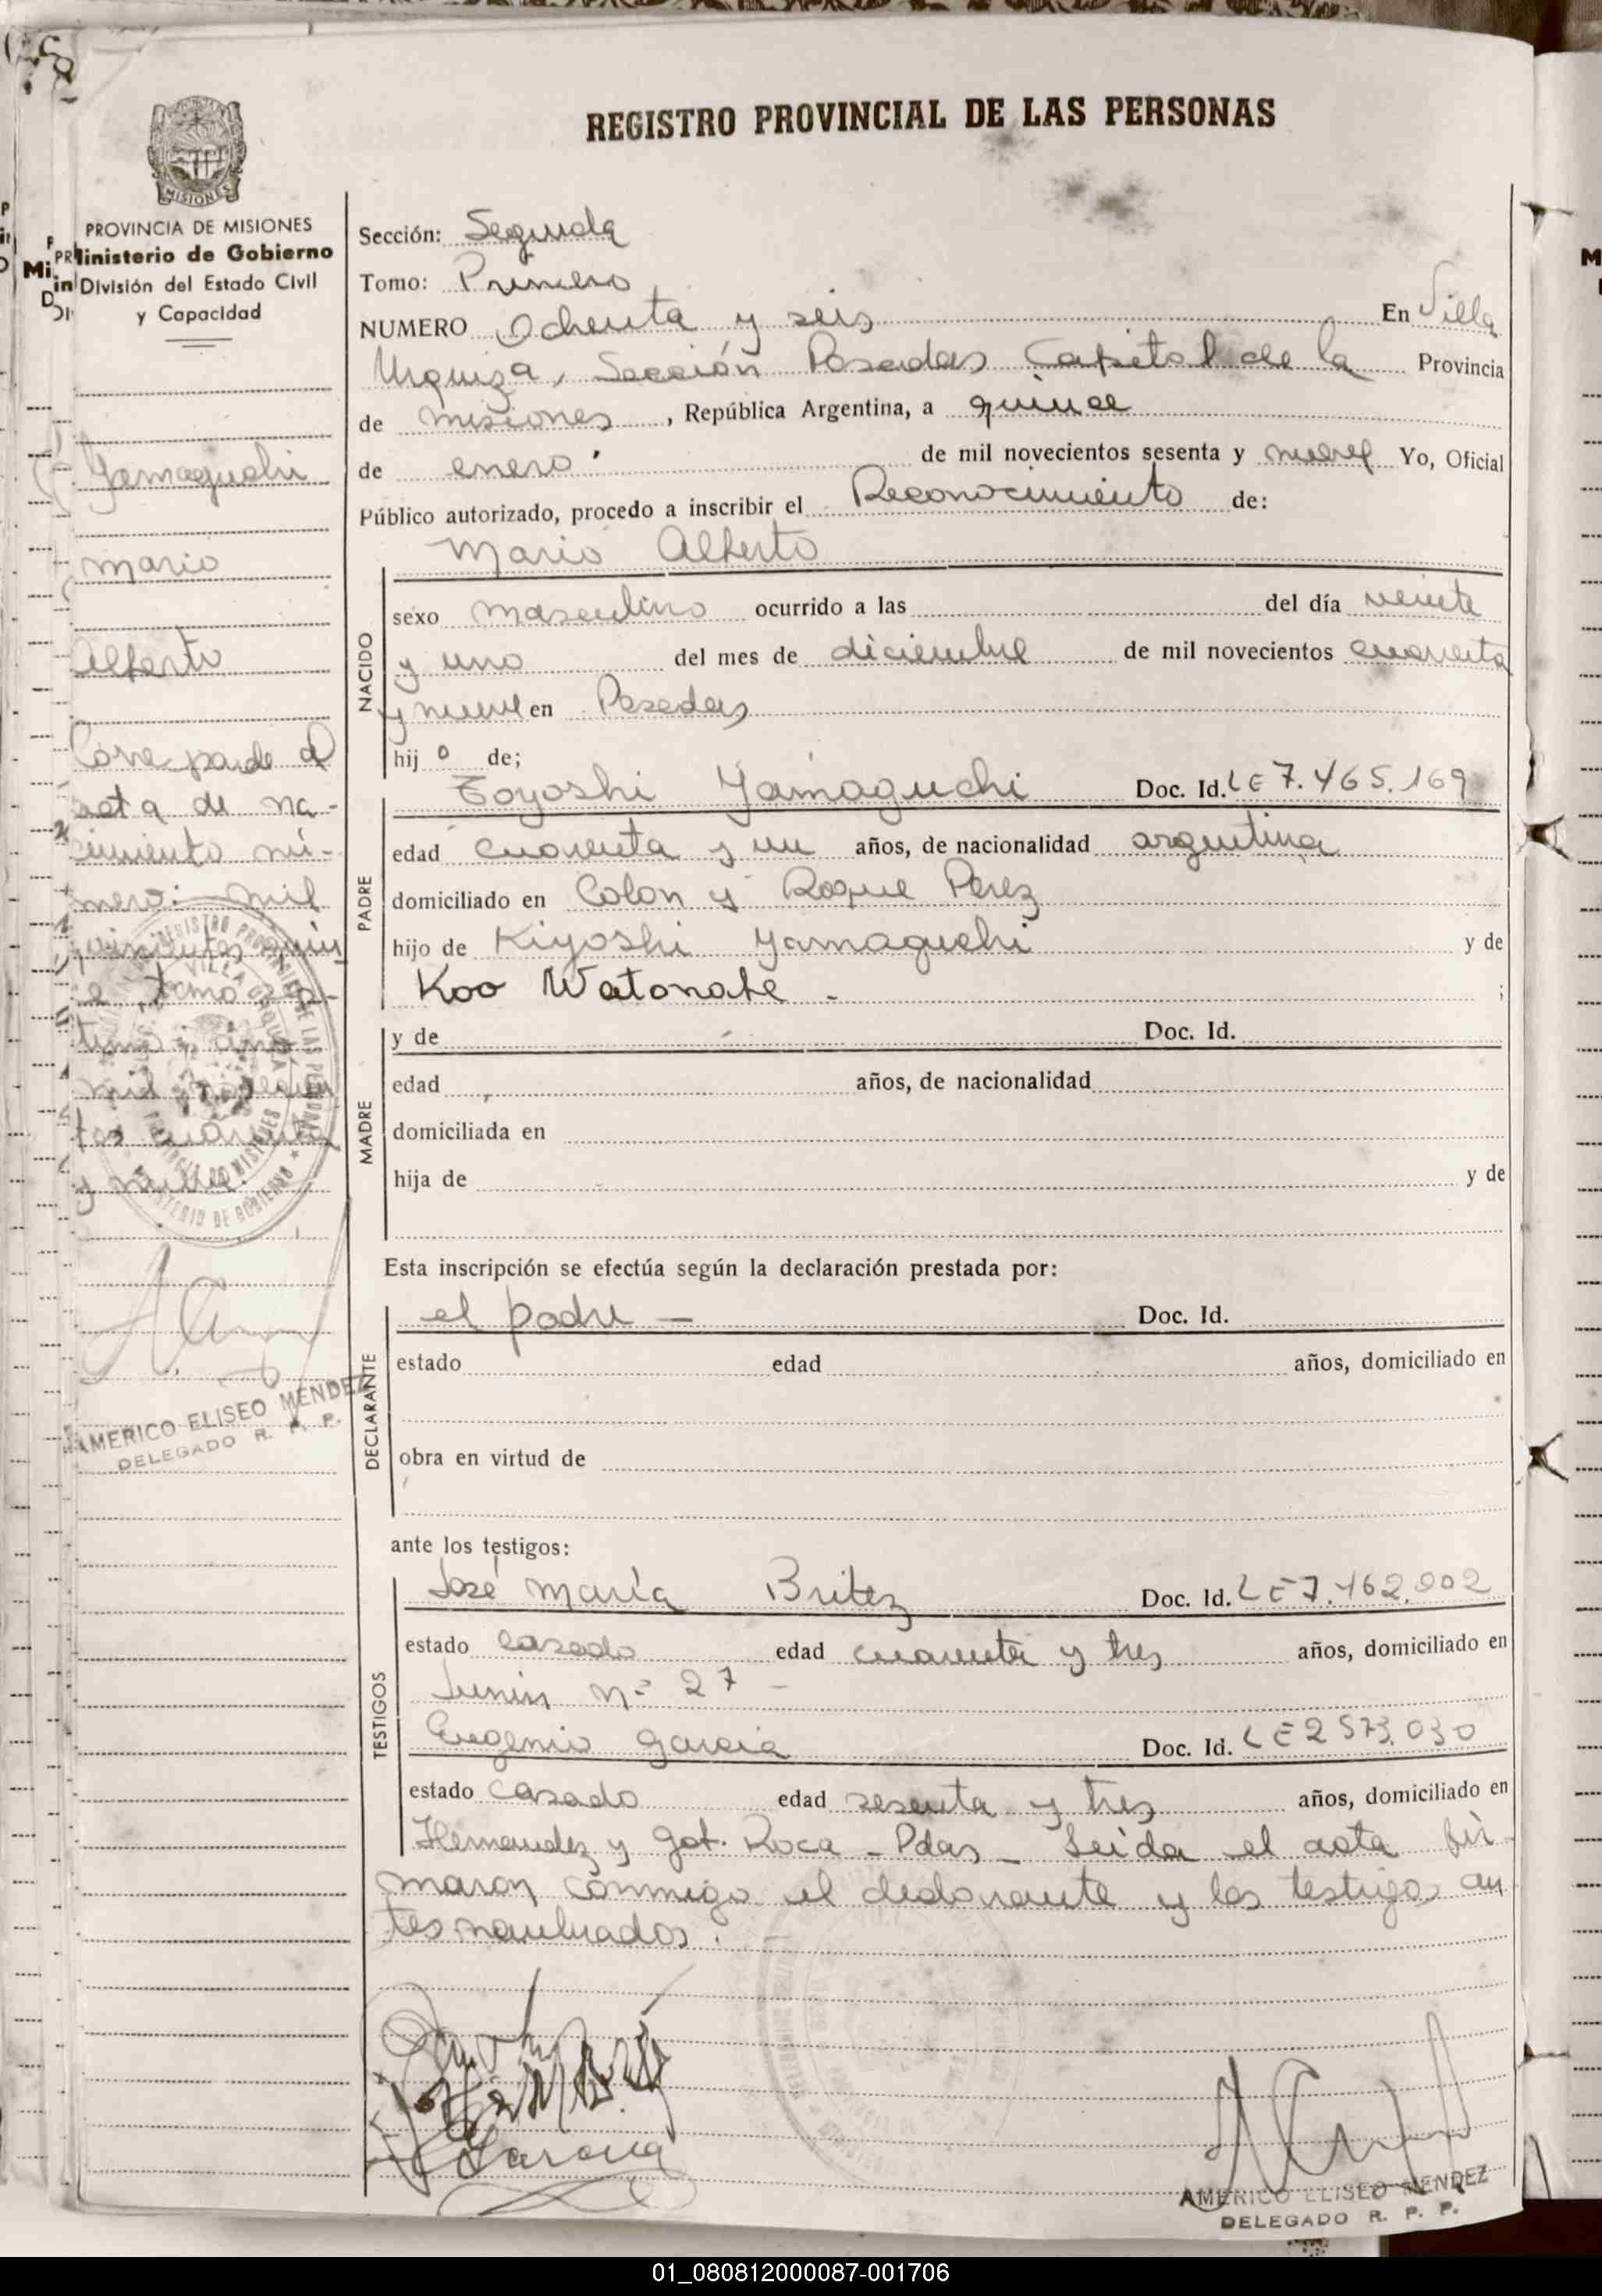 REGISTRO PROVINCIAL DE LAS PERSONAS
MISIONES
PROVINCIA DE MISIONES
Ministerio de Gobierno
División del Estado Civil
y Capacidad
Yamaguchi
Mario
Alberto
Corresponde al
acta de na-
cimiento nú-
mero: mil
quinientos quin
ce tomo sép-
timo, año
mil novecien
tos cuarenta
y nueve.
AMERICO ELISEO MENDEZ
DELEGADO R. P. P.
Sección: Segunda
Tomo: Primero
NUMERO Ochenta y seis En Villa
Urquiza, Sección Posadas Capital de la Provincia
de misiones, República Argentina, a quince
de enero de mil novecientos sesenta y nueve Yo, Oficial
Público autorizado, procedo a inscribir el Reconocimiento de:
Mario Alberto
NACIDO
sexo masculino ocurrido a las del día veinte
y uno del mes de diciembre de mil novecientos cuarenta
y nueve en Posadas
hijo de;
PADRE
Toyoshi Yamaguchi Doc. Id. LE 7.465.169
edad cuarenta y un años, de nacionalidad argentina
domiciliado en Colon y Roque Perez
hijo de Kiyoshi Yamaguchi y de
Koo Watonabe - ;
MADRE
y de Doc. Id.
edad años, de nacionalidad
domiciliada en
hija de y de
Esta inscripción se efectúa según la declaración prestada por:
DECLARANTE
el padre — Doc. Id.
estado edad años, domiciliado en
obra en virtud de
ante los testigos:
TESTIGOS
José María Britez Doc. Id. LE 7.462.002
estado casado edad cuarenta y tres años, domiciliado en
Junin nº 27 -
Eugenio Garcia Doc. Id. LE 2 573.030
estado casado edad sesenta y tres años, domiciliado en
Hernandez y Got. Roca - Pdas - Leída el acta fir
maron conmigo el declarante y los testigos an
tes nombrados. -
AMERICO ELISEO MENDEZ
DELEGADO R. P. P.
01_080812000087-001706